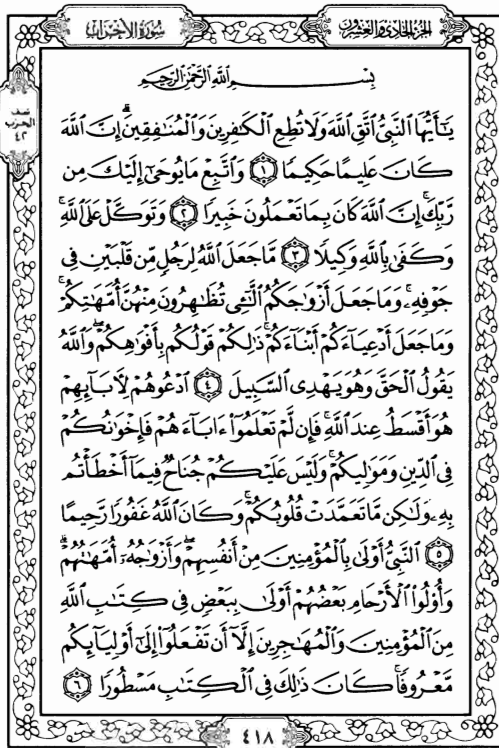 الجزء الحادي والعشرون
سورة الأحزاب
نصف
الحزب
٤٢
بِسْمِ ٱللَّهِ ٱلرَّحْمَٰنِ ٱلرَّحِيمِ
يَٰٓأَيُّهَا ٱلنَّبِىُّ ٱتَّقِ ٱللَّهَ وَلَا تُطِعِ ٱلْكَٰفِرِينَ وَٱلْمُنَٰفِقِينَۗ إِنَّ ٱللَّهَ
كَانَ عَلِيمًا حَكِيمًا ١ وَٱتَّبِعْ مَا يُوحَىٰٓ إِلَيْكَ مِن
رَّبِّكَۚ إِنَّ ٱللَّهَ كَانَ بِمَا تَعْمَلُونَ خَبِيرًا ٢ وَتَوَكَّلْ عَلَى ٱللَّهِۚ
وَكَفَىٰ بِٱللَّهِ وَكِيلًا ٣ مَّا جَعَلَ ٱللَّهُ لِرَجُلٍ مِّن قَلْبَيْنِ فِى
جَوْفِهِۦۚ وَمَا جَعَلَ أَزْوَٰجَكُمُ ٱلَّٰٓـِٔى تُظَٰهِرُونَ مِنْهُنَّ أُمَّهَٰتِكُمْۚ
وَمَا جَعَلَ أَدْعِيَآءَكُمْ أَبْنَآءَكُمْۚ ذَٰلِكُمْ قَوْلُكُم بِأَفْوَٰهِكُمْۖ وَٱللَّهُ
يَقُولُ ٱلْحَقَّ وَهُوَ يَهْدِى ٱلسَّبِيلَ ٤ ٱدْعُوهُمْ لِءَابَآئِهِمْ
هُوَ أَقْسَطُ عِندَ ٱللَّهِۚ فَإِن لَّمْ تَعْلَمُوٓا۟ ءَابَآءَهُمْ فَإِخْوَٰنُكُمْ
فِى ٱلدِّينِ وَمَوَٰلِيكُمْۚ وَلَيْسَ عَلَيْكُمْ جُنَاحٌ فِيمَآ أَخْطَأْتُم
بِهِۦ وَلَٰكِن مَّا تَعَمَّدَتْ قُلُوبُكُمْۚ وَكَانَ ٱللَّهُ غَفُورًا رَّحِيمًا
٥ ٱلنَّبِىُّ أَوْلَىٰ بِٱلْمُؤْمِنِينَ مِنْ أَنفُسِهِمْۖ وَأَزْوَٰجُهُۥٓ أُمَّهَٰتُهُمْۗ
وَأُو۟لُوا۟ ٱلْأَرْحَامِ بَعْضُهُمْ أَوْلَىٰ بِبَعْضٍ فِى كِتَٰبِ ٱللَّهِ
مِنَ ٱلْمُؤْمِنِينَ وَٱلْمُهَٰجِرِينَ إِلَّآ أَن تَفْعَلُوٓا۟ إِلَىٰٓ أَوْلِيَآئِكُم
مَّعْرُوفًاۚ كَانَ ذَٰلِكَ فِى ٱلْكِتَٰبِ مَسْطُورًا ٦
٤١٨